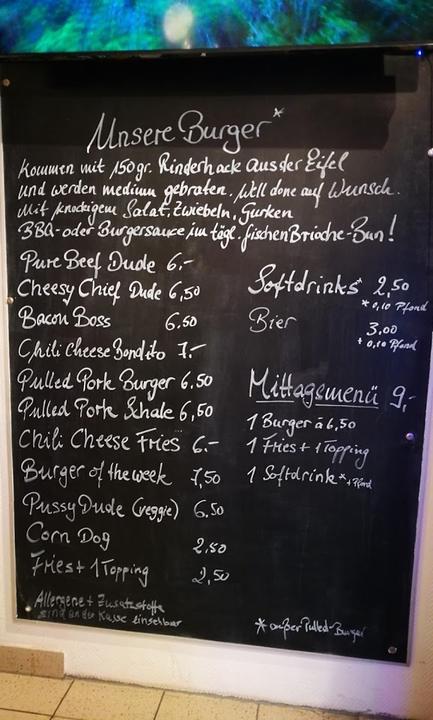 Unsere Burger*
Kommen mit 150gr. Rinderhack aus der Eifel
und werden medium gebraten. Well done auf Wunsch.
Mit knackigem Salat, Zwiebeln, Gurken
BBQ- oder Burgersauce im tägl. frischen Brioche-Bun!
Pure Beef Dude 6.-
Cheesy Chief Dude 6,50
Bacon Boss 6.50
Chili Cheese Bandito 7.-
Pulled Pork Burger 6.50
Pulled Pork Schale 6,50
Chili Cheese Fries 6.-
Burger of the week 7,50
Pussy Dude (veggie) 6,50
Corn Dog 2,50
Fries + 1 Topping 2,50
Allergene + Zusatzstoffe
sind an der Kasse einsehbar
Softdrinks* 2,50
* 0,10 Pfand
Bier 3,00
+ 0,10 Pfand
Mittagsmenü 9,-
1 Burger á 6,50
1 Fries + 1 Topping
1 Softdrink* + Pfand
* außer Pulled-Burger